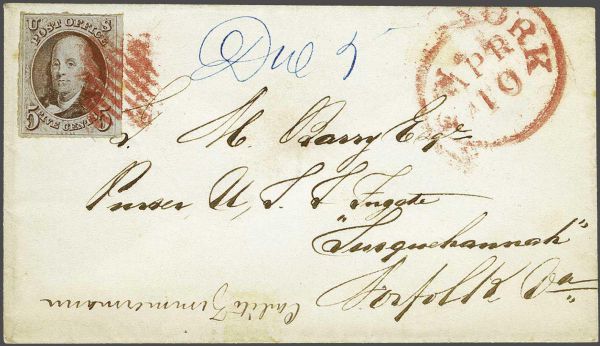 U S
POST OFFICE
5 FIVE CENTS 5
Due 5
YORK
APR
10
M. Barry Esqr
Purser U. S. S. Frigate
"Susquehannah"
Norfolk Va
Zimmermann